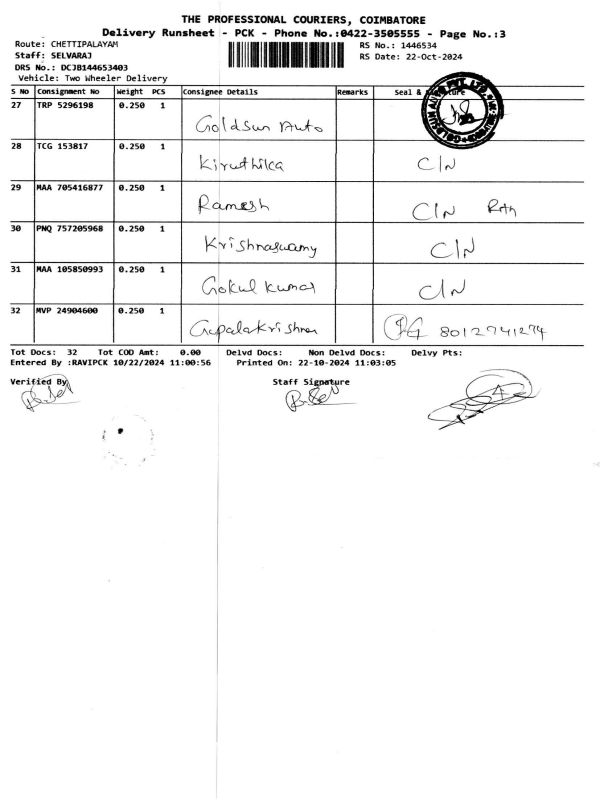 THE PROFESSIONAL COURIERS, COIMBATORE
Delivery Runsheet - PCK - Phone No.:0422-3505555 - Page No.:3
Route: CHETTIPALAYAM RS No.: 1446534
Staff: SELVARAJ RS Date: 22-Oct-2024
DRS No.: DCJB144653403
Vehicle: Two Wheeler Delivery
S No Consignment No Weight PCS Consignee Details Remarks Seal &
27 TRP 5296198 0.250 1
Goldsun Auto
28 TCG 153817 0.250 1
Kiruthika C/N
29 MAA 705416877 0.250 1
Ramesh C/N
30 PNQ 757205968 0.250 1
Krishnaswamy C/N
31 MAA 105850993 0.250 1
Gokul kumar C/N
32 MVP 24904600 0.250 1
Gopalakrishnan 8012741274
Tot Docs: 32 Tot COD Amt: 0.00 Delvd Docs: Non Delvd Docs: Delvy Pts:
Entered By :RAVIPCK 10/22/2024 11:00:56 Printed On: 22-10-2024 11:03:05
Verified By Staff Signature